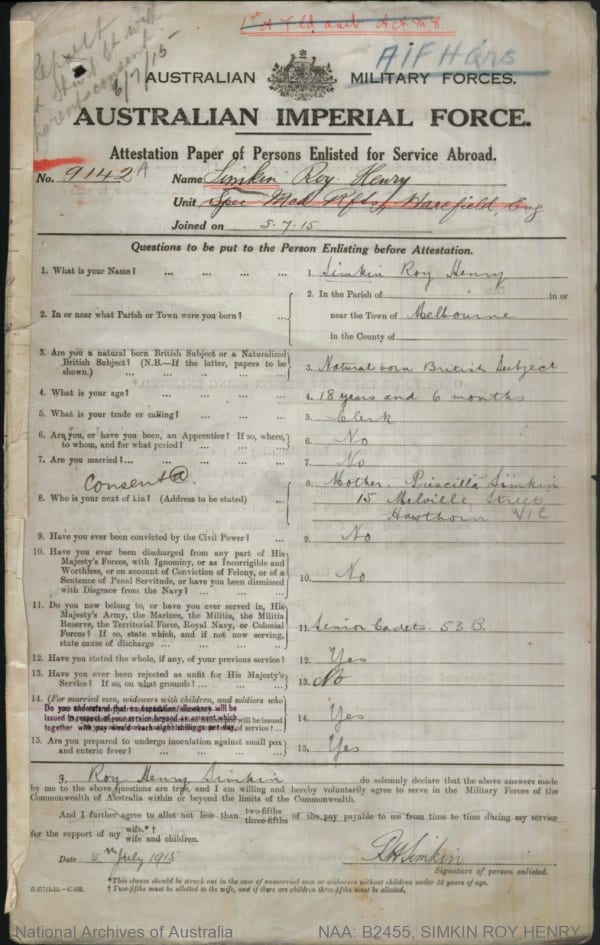 1st Fld
AIF Hqrs
with
parents consent
6/7/15
AUSTRALIAN MILITARY FORCES.
AUSTRALIAN IMPERIAL FORCE.
Attestation Paper of Persons Enlisted for Service Abroad.
No. 9142A Name Simkin Roy Henry
Unit Spec Med Rfts, Harefield, Eng
Joined on 5.7.15
Questions to be put to the Person Enlisting before Attestation.
1. What is your Name? ... ... ... ... 1. Simkin Roy Henry
2. In or near what Parish or Town were you born? ... 2. In the Parish of in or
near the Town of Melbourne
in the County of
3. Are you a natural born British Subject or a Naturalized
British Subject? (N.B.—If the latter, papers to be
shown.) ... ... ... ... ... 3. Natural born British Subject
4. What is your age? ... ... ... ... 4. 18 years and 6 months
5. What is your trade or calling? ... ... ... 5. Clerk
6. Are you, or have you been, an Apprentice? If so, where,
to whom, and for what period? ... ... ... 6. No
7. Are you married? ... ... ... ... 7. No
Consent
8. Who is your next of kin? (Address to be stated) ... 8. Mother. Priscilla Simkin
15 Melville Street
Hawthorn VIC
9. Have you ever been convicted by the Civil Power? ... 9. No
10. Have you ever been discharged from any part of His
Majesty's Forces, with Ignominy, or as Incorrigible and
Worthless, or on account of Conviction of Felony, or of a
Sentence of Penal Servitude, or have you been dismissed
with Disgrace from the Navy? ... ... ... 10. No
11. Do you now belong to, or have you ever served in, His
Majesty's Army, the Marines, the Militia, the Militia
Reserve, the Territorial Force, Royal Navy, or Colonial
Forces? If so, state which, and if not now serving,
state cause of discharge ... ... ... ... 11. Senior Cadets. 53 B.
12. Have you stated the whole, if any, of your previous service? 12. Yes
13. Have you ever been rejected as unfit for His Majesty's
Service? If so, on what grounds? ... ... ... 13. No
14. (For married men, widowers with children, and soldiers who
Do you understand that no separation allowance will be
issued in respect of your service beyond an amount which
together with pay would reach eight shillings per day. of service? ... 14. Yes
15. Are you prepared to undergo inoculation against small pox
and enteric fever? ... ... ... ... 15. Yes
I, Roy Henry Simkin do solemnly declare that the above answers made
by me to the above questions are true, and I am willing and hereby voluntarily agree to serve in the Military Forces of the
Commonwealth of Australia within or beyond the limits of the Commonwealth.
And I further agree to allot not less than two-fifths three-fifths of the pay payable to me from time to time during my service
for the support of my wife.*†
wife and children.
Date 5th July 1915 RHSimkin
Signature of person enlisted.
*This clause should be struck out in the case of unmarried men or widowers without children under 18 years of age.
† Two-fifths must be allotted to the wife, and if there are children three-fifths must be allotted.
National Archives of Australia NAA: B2455, SIMKIN ROY HENRY